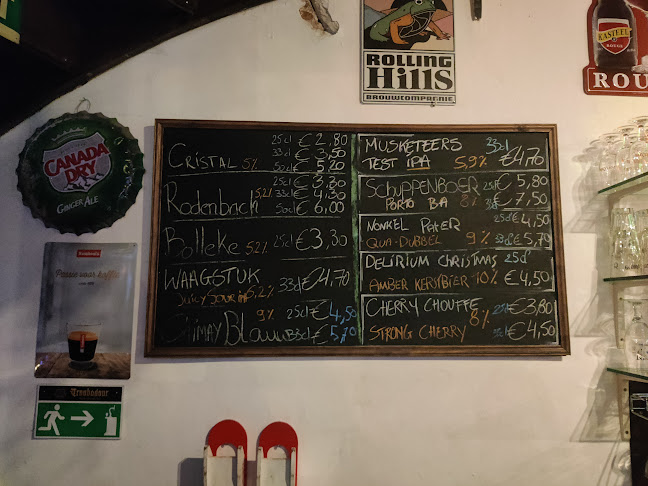 CANADA
DRY
GINGER ALE
ROLLING
Hills
BROUWCOMPAGNIE
KASTEEL
ROUGE
ROU
CRISTAL 5% 25cl € 2,80
33cl € 3,50
50cl € 5,20
Rodenbach 5,2% 25cl
33cl
50cl € 6,00
Bolleke 5,2% 25cl € 3,30
WAAGSTUK 33cl € 4,70
JUICY SOUR 6,2%
CHIMAY Blauw 9% 25cl € 4,50
33cl
MUSKETEERS 33cl € 4,70
TEST IPA 5,9%
SCHUPPENBOER 25cl € 5,80
PORTO BA € 7,50
NONKEL PATER 25cl € 4,50
QUA-DUBBEL 9% 33cl
DELIRIUM CHRISTMAS 25cl
AMBER KERSTBIER 10% € 4,50
CHERRY CHOUFFE € 3,80
STRONG CHERRY 8% € 4,50
Passie voor koffie
Troubadour